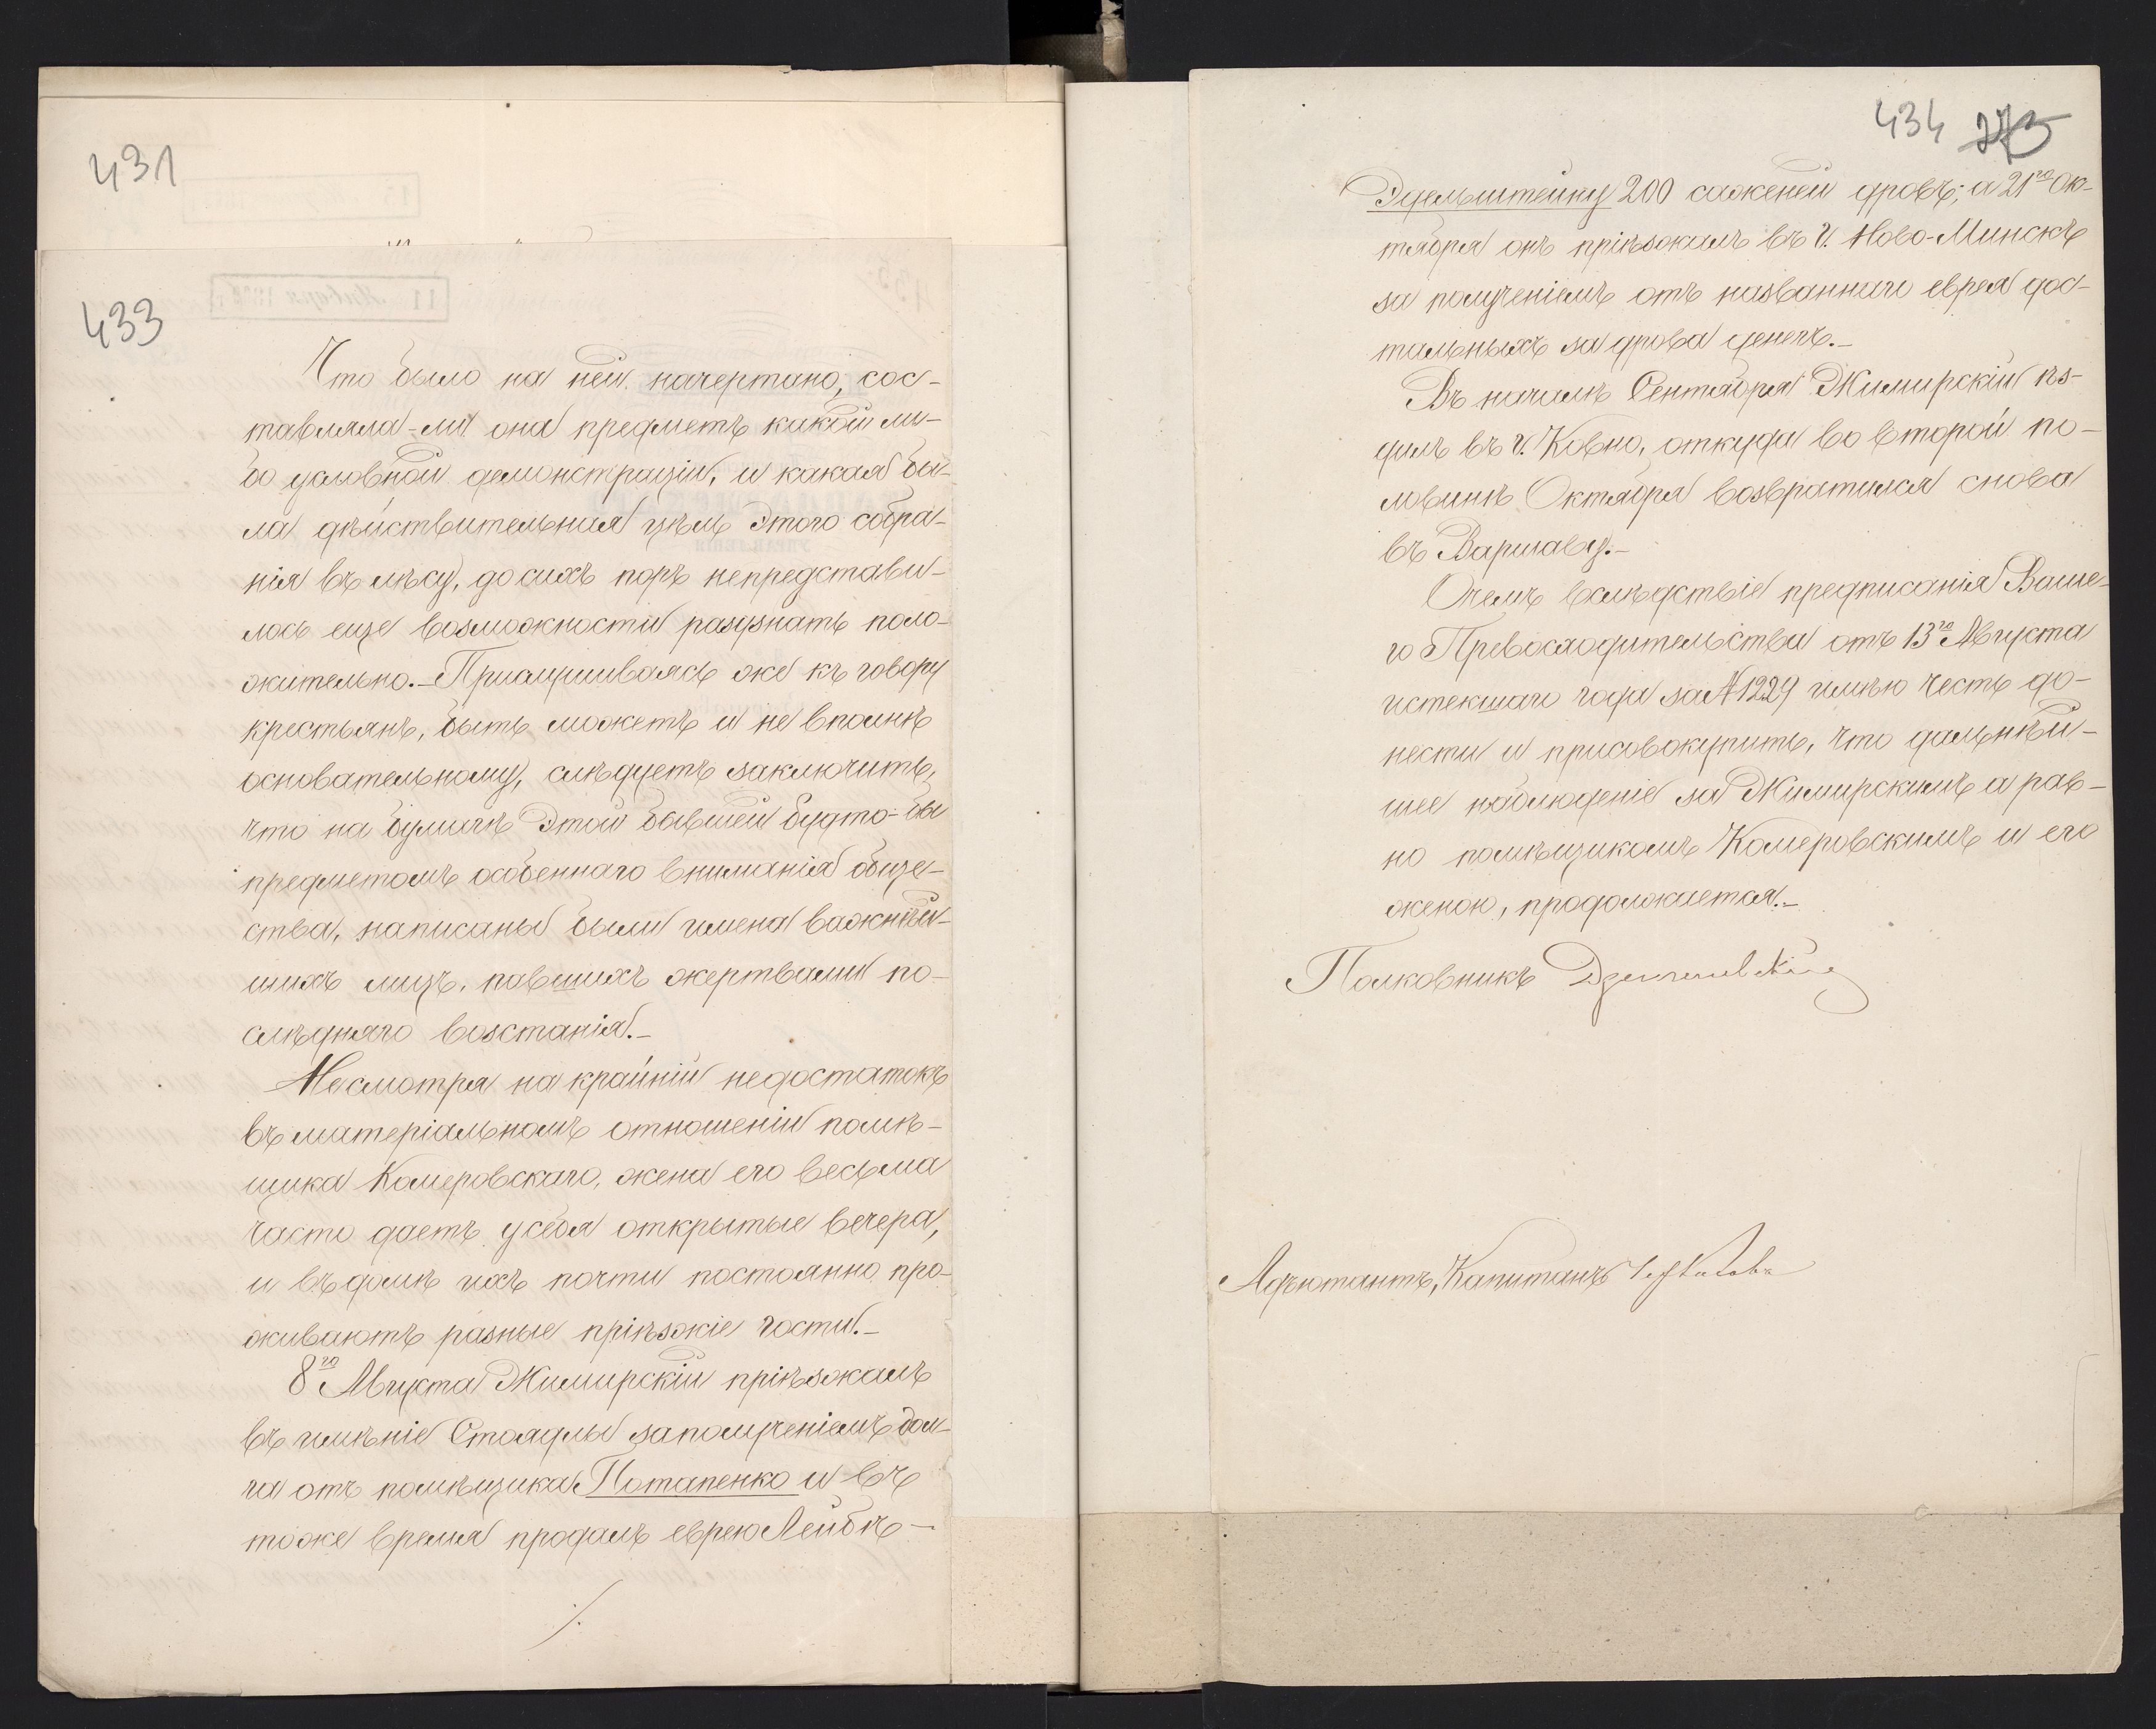 431
433
Что было на ней начертано, сос-
тавляла-ли она предметъ какой ли-
бо условной демонстраціи, и какая бы-
ла дѣйствительная цѣль этого собра-
нія въ лѣсу, до сихъ поръ непредстави-
лось еще возможности разузнать поло-
жительно.- Прислушиваясь же къ говору
крестьянъ, быть можетъ и не вполнѣ
основательному, слѣдуетъ заключить,
что на бумагѣ этой бывшей будто-бы
предметомъ особеннаго вниманія обще-
ства, написаны были имена важнѣй-
шихъ лицъ, павшихъ жертвами по-
слѣдняго возстанія.-
Несмотря на крайній недостатокъ
въ матеріальномъ отношеніи помѣ-
щика Комеровскаго, жена его весьма
часто даетъ у себя открытые вечера,
и въ домѣ ихъ почти постоянно про-
живаютъ разные пріѣзжіе гости.-
8го Августа Жимирскій пріѣзжалъ
въ имѣніе Стоядлы за полученіемъ дол-
га отъ помѣщика Потапенко и въ
тоже время продалъ еврею Лейбѣ-
/.
434 273
Эдельштейну 200 саженей дровъ; а 21го Ок-
тября онъ пріѣзжалъ въ г. Ново-Минскъ
за полученіемъ отъ названнаго еврея дос-
тальныхъ за дрова денегъ.-
Въ началѣ Сентября Жимирскій ѣз-
дилъ въ г. Ковно, откуда во второй по-
ловинѣ Октября возвратился снова
въ Варшаву.-
О чемъ вслѣдствіе предписанія Ваше-
го Превосходительства отъ 13го Августа
истекшаго года за № 1229 имѣю честь до-
нести и присовокупить, что дальнѣй-
шее наблюденіе за Жимирскимъ а рав-
но помѣщикомъ Комеровскимъ и его
женою, продолжается.-
Полковникъ
Адъютантъ, Капитанъ